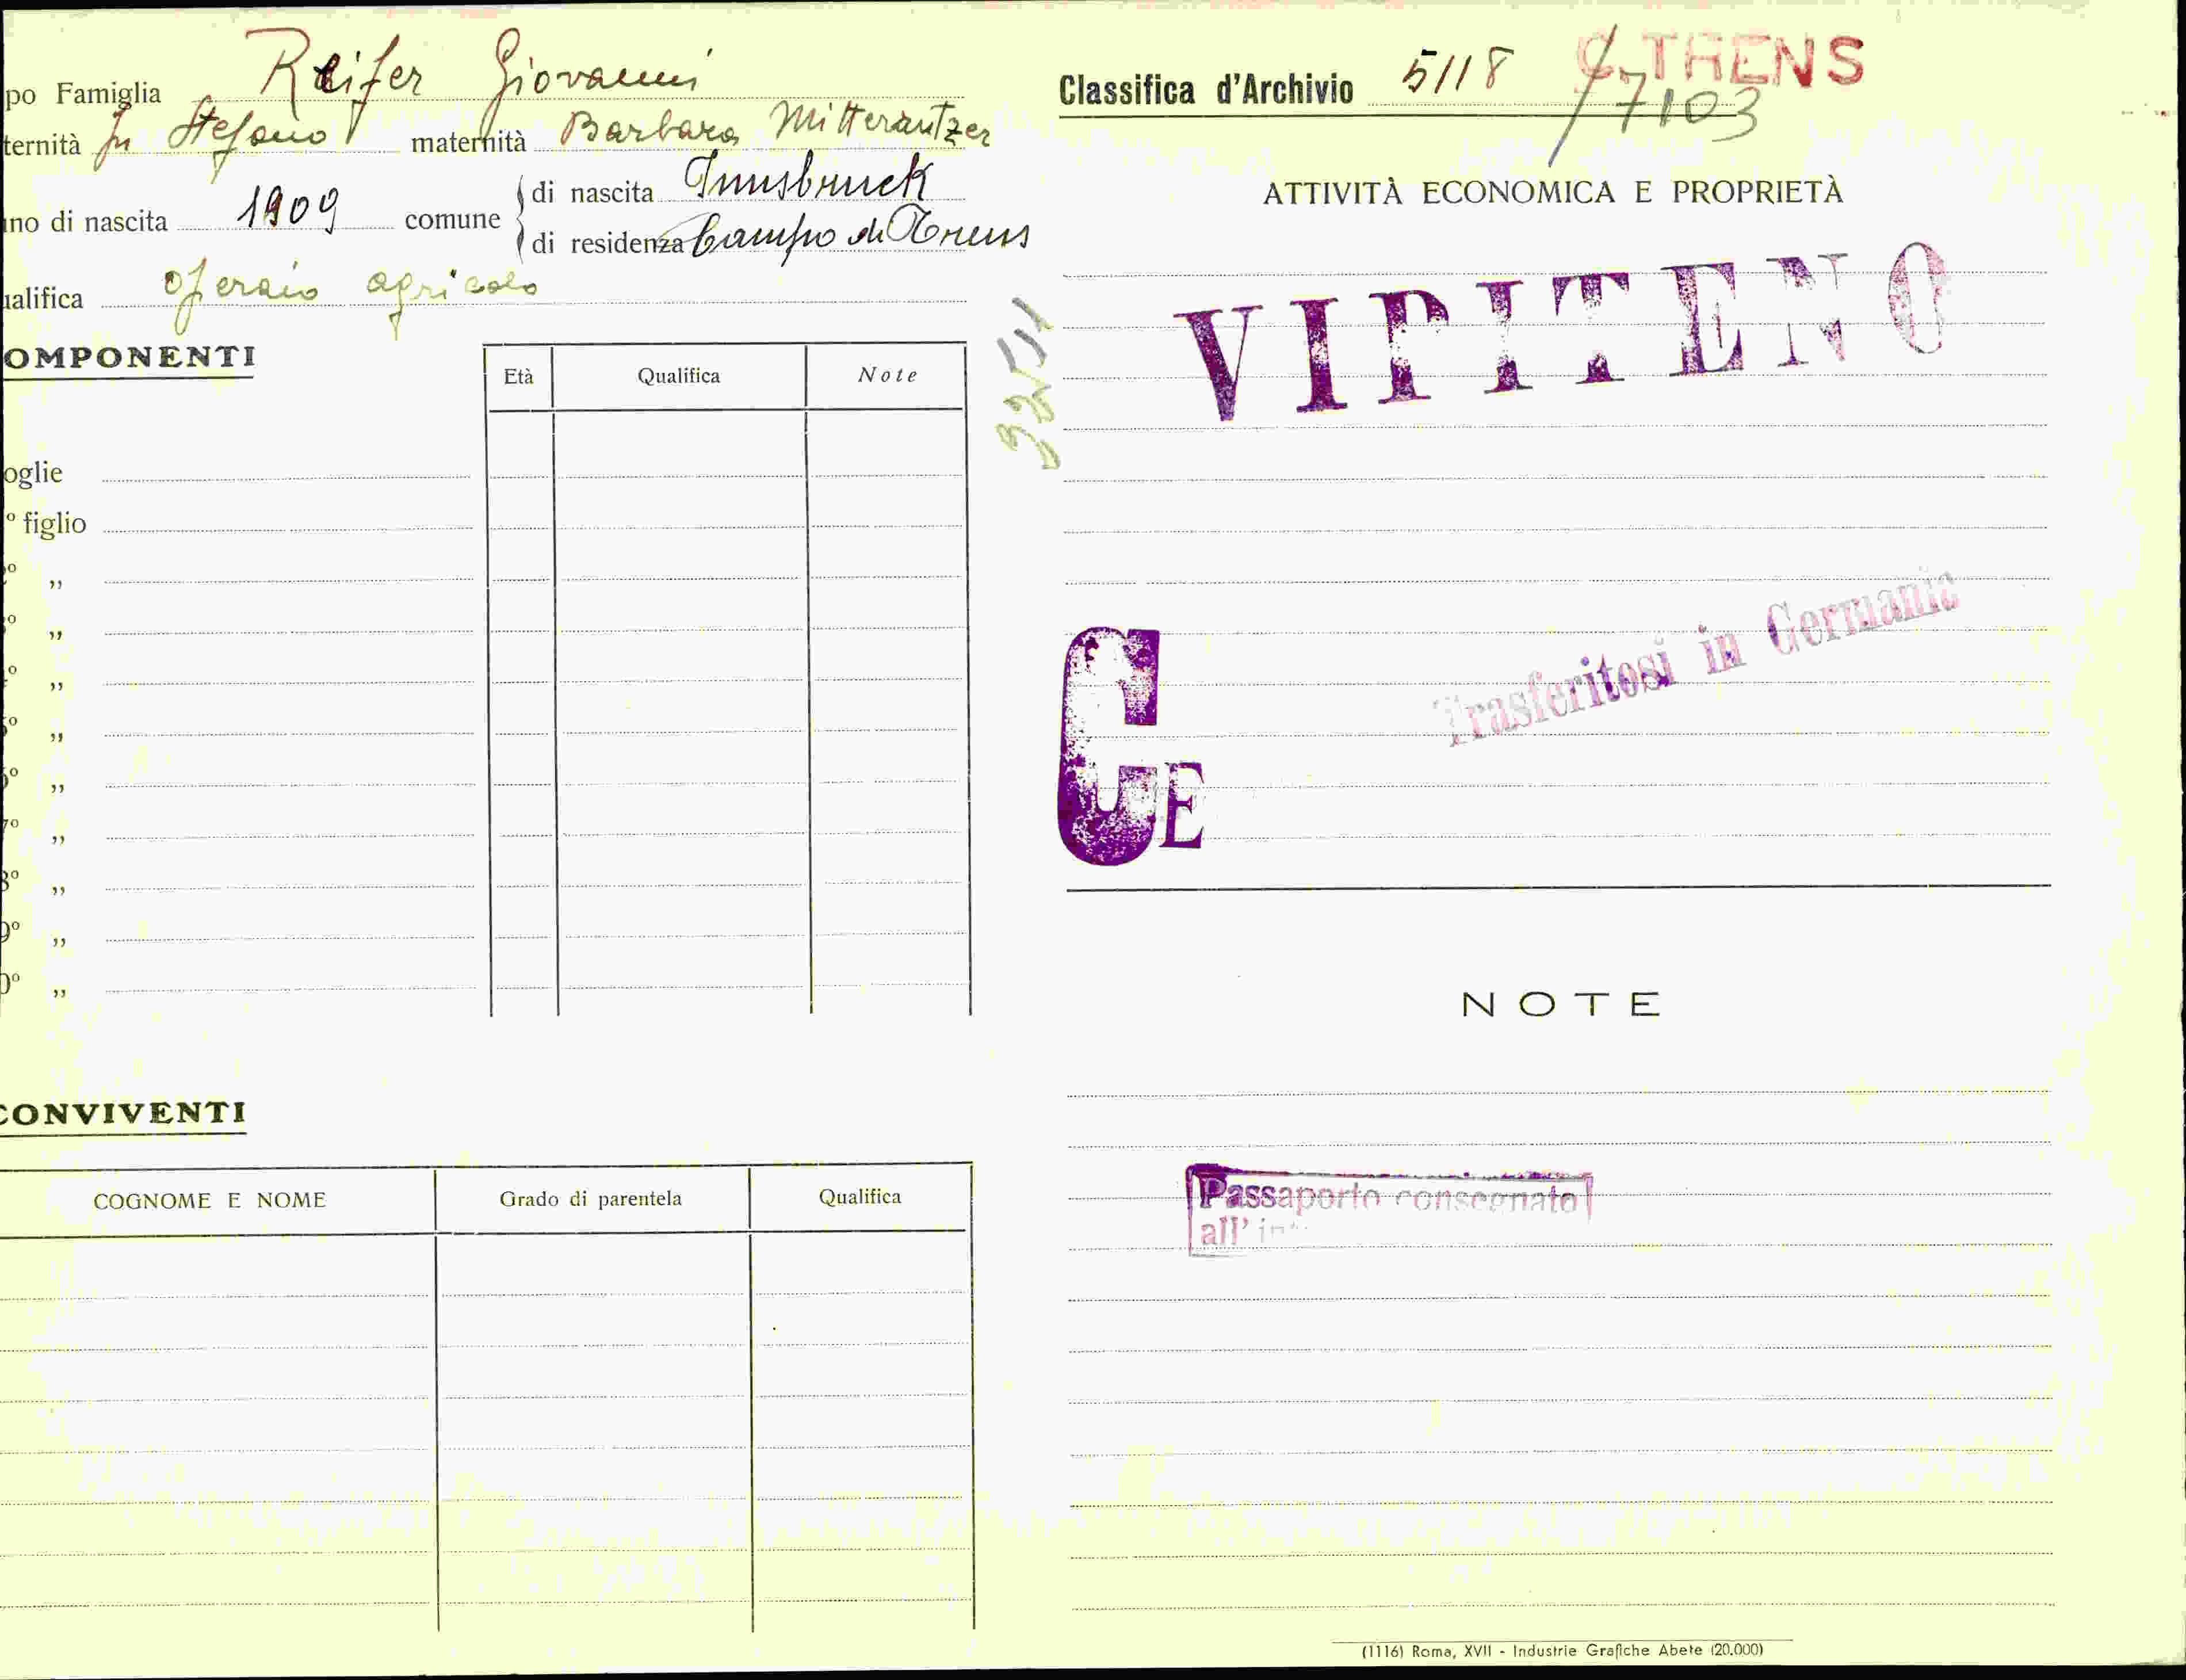 po Famiglia Reifer Giovanni
ternità fu Stefano maternità Barbara Mitterrutzer
no di nascita 1909 comune di nascita Innsbruck
di residenza Campo di Trens
ualifica operaio agricolo
OMPONENTI
Età Qualifica Note
oglie
º figlio
º „
º „
º „
º „
6º „
7º „
8º „
9º „
0º „
CONVIVENTI
COGNOME E NOME Grado di parentela Qualifica
Classifica d'Archivio 5118 C. THENS
/7103
ATTIVITÀ ECONOMICA E PROPRIETÀ
VIPITENO
Trasferitosi in Germania
GE
NOTE
Passaporto consegnato
all'
(1116) Roma, XVII - Industrie Grafiche Abete (20.000)